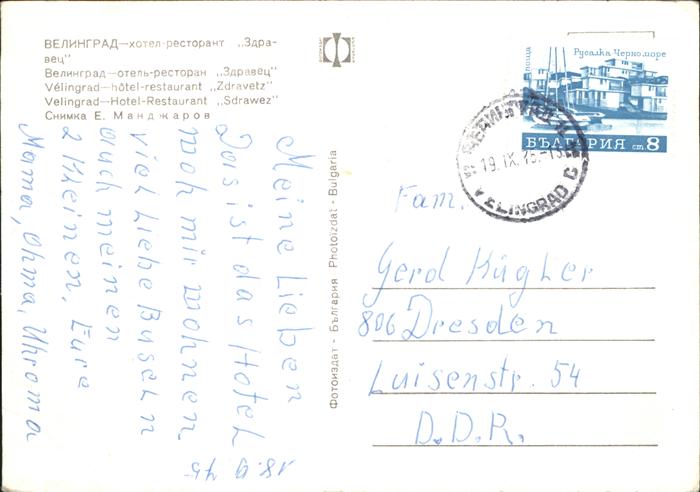 ВЕЛИНГРАД—хотел-ресторант „Здра-
вец"
Велинград—отель-ресторан „Здравец"
Vélingrad—hôtel-restaurant „Zdravetz"
Velingrad—Hotel-Restaurant „Sdrawez"
Снимка Е. Манджаров
поща
Русалка Черноморе
БЪЛГАРИЯ ст 8
VELINGRAD
Фотоиздат - България Photoizdat - Bulgaria
18.9.75
Meine Lieben
Das ist das Hotel
woh mir wohnen,
viel liebe Buseln
auch meinen
2 Kleinen, Eure
Mama, Ohma, Uhroma
Fam.
Gerd Kügler
806 Dresden
Luisenstr. 54
D.D.R.